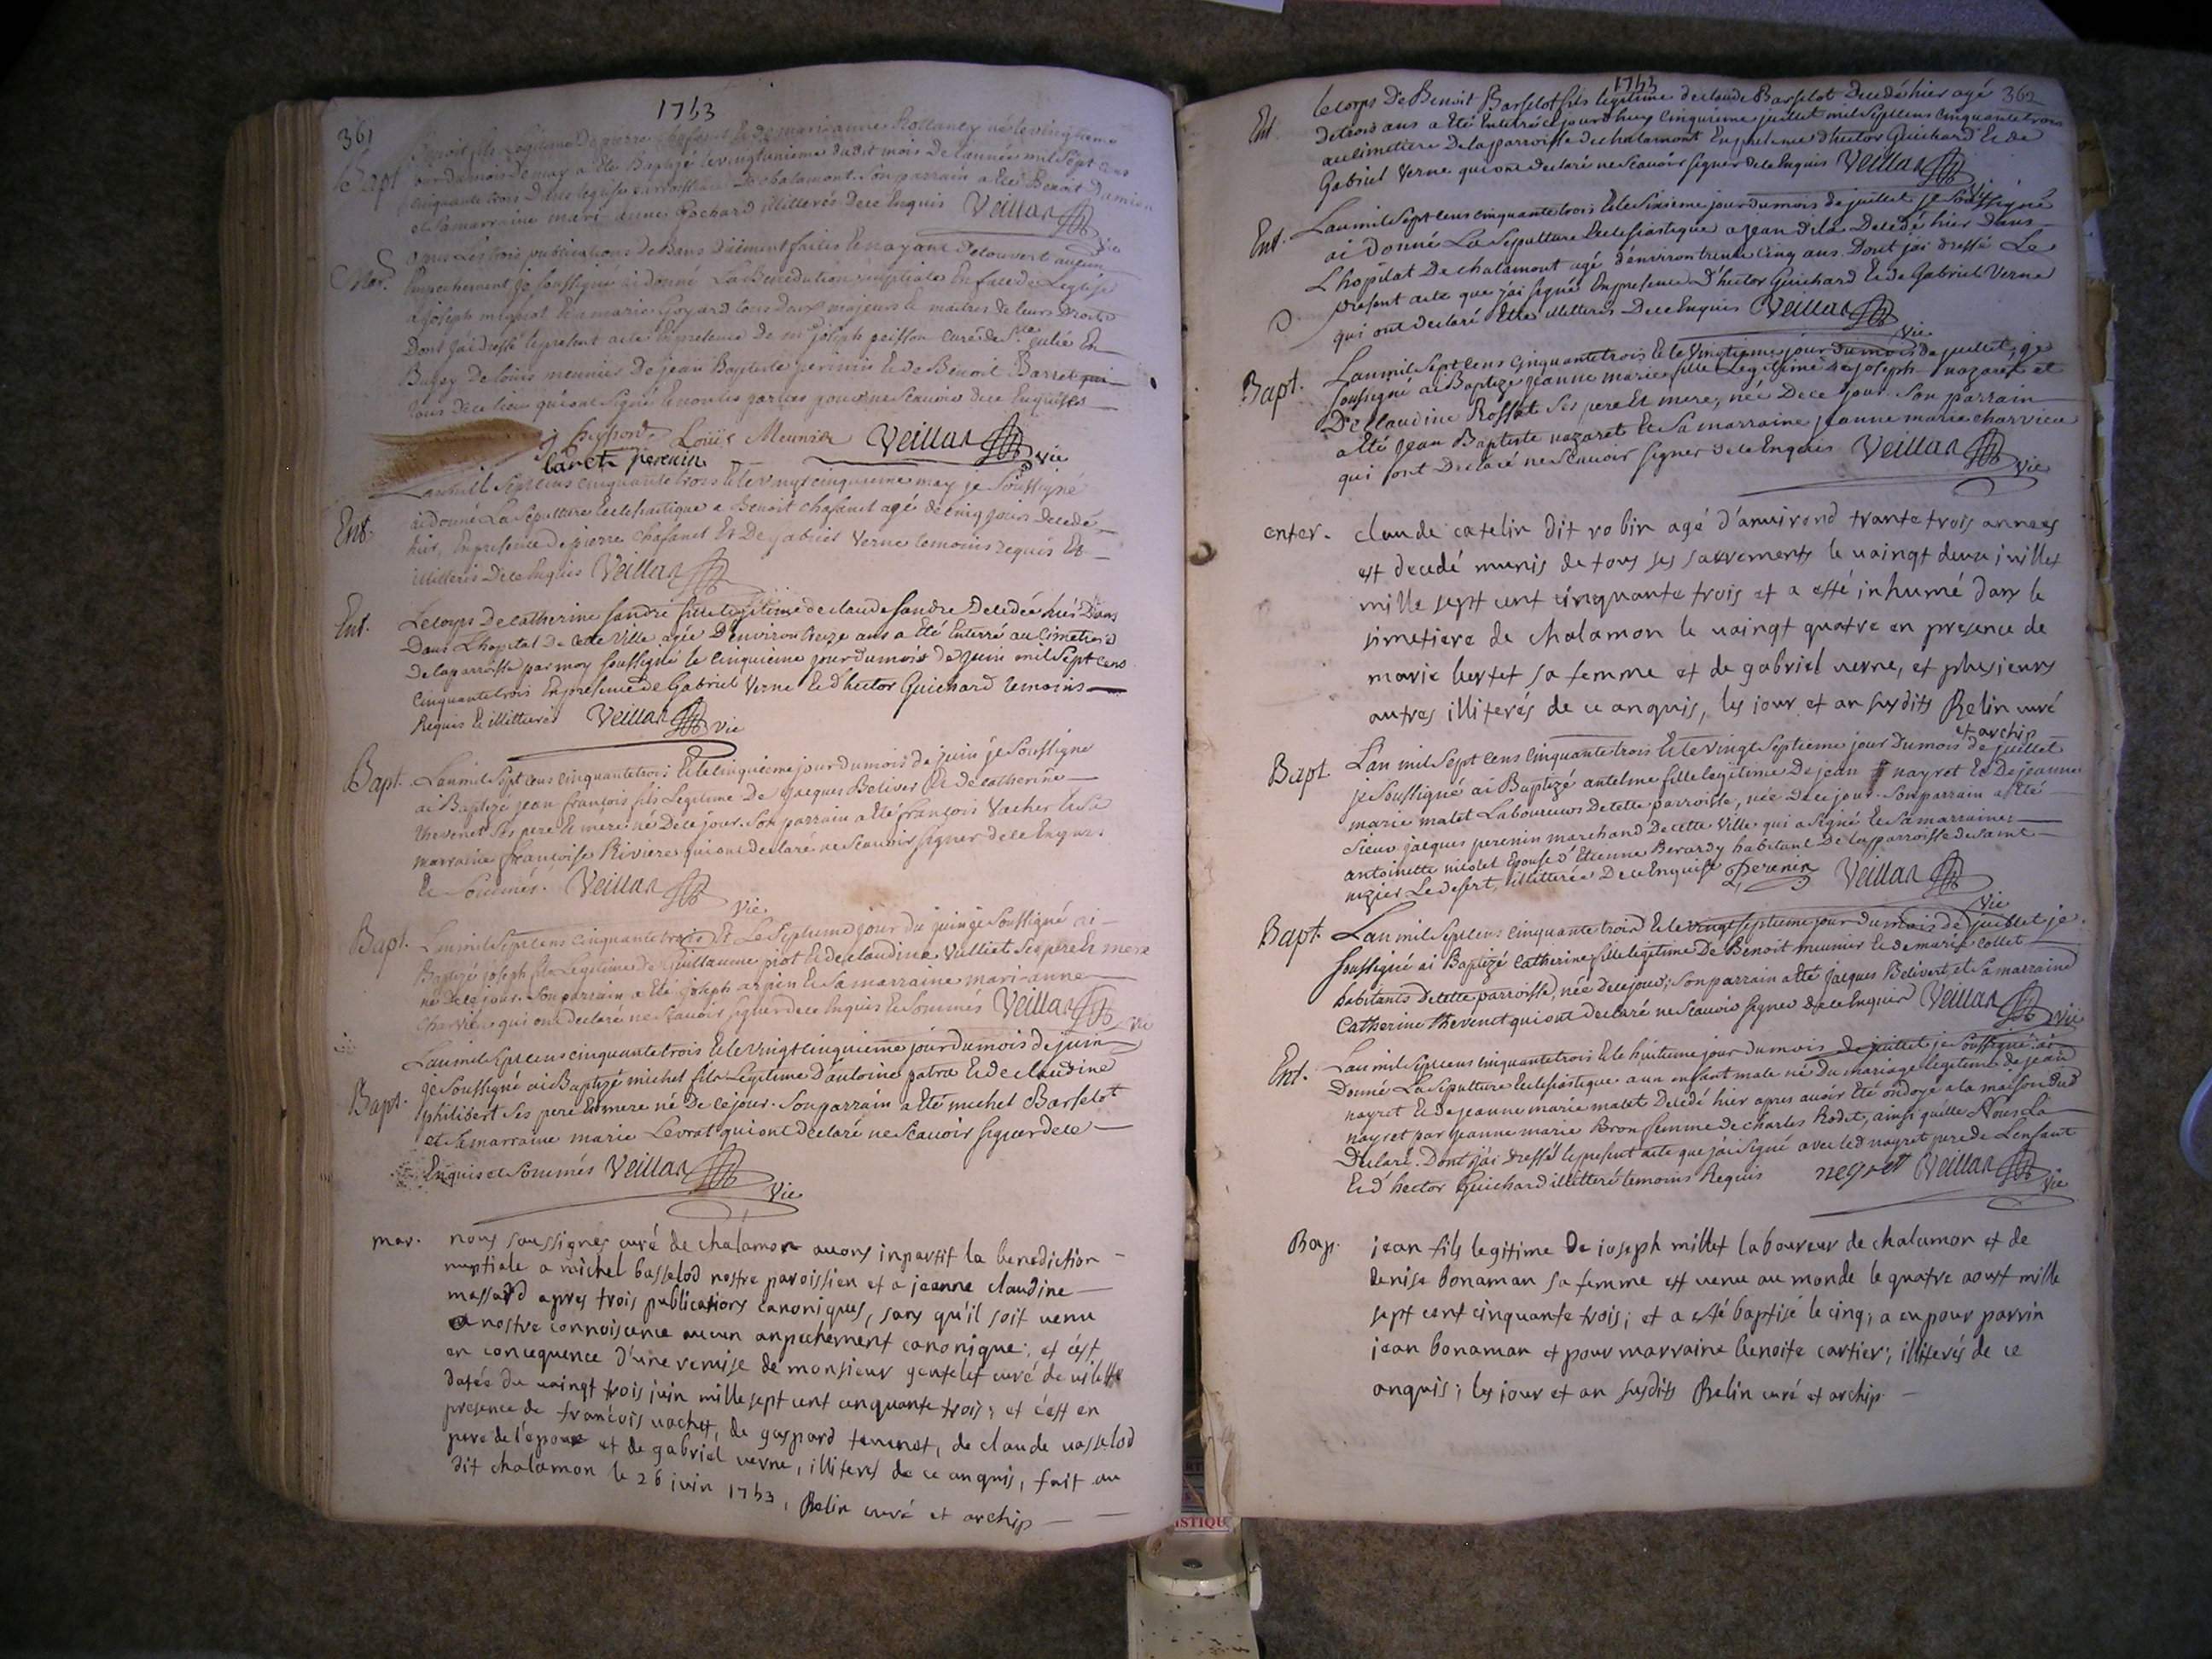 1753
361
Bapt
Benoit fils Legitime De pierre Chafanel Et de mari anne né le vingtieme
jour du mois de may a Eté Baptizé le vingtunieme dudit mois De l'année mil Sept cens
cinquante trois Dans leglise parroissiale De chalamont. Son parrain a Eté Benoit Damian
et Sa marraine mari anne Pochard illitterés De ce Enquis Veillan
Vic
Mar.
apres Les trois publications De Bans Dûement faites Et n'ayant Decouvert aucun
Empechement je soussigné ai donné La Benediction nuptiale En face de L'eglise
a joseph mignot Et a marie Goyard tous Deux majeurs et maitres de leurs Droits
Dont j'ai dressé le present acte En presence de mr joseph peisson curé de Ste julie En
Bugey De louis meunier De jean Baptiste perenin Et de Benoit Barret
tous De ce lieu qui ont signé Et non les parties pour ne Scavoir de ce Enquises
j peysson Louis Meunier Veillan Vic
baret perenin
Ent.
L'an mil Sept cens cinquante trois Et le vingt cinquieme may je Soussigné
ai donné La Sepulture Ecclesiastique a Benoit chafanel agé de cinq jours Decedé
hier, En presence De pierre Chafanel Et De gabriel Verne temoins requis Et
illitterés De ce Enquis Veillan
Ent.
Le corps De catherine fandre fille legitime de claude fandre Decedée hier Dans
Dans L'hopital De Cette Ville agée D'environ treize ans a Eté Enterré au Cimetiere
De la parroisse par moy soussigné le cinquieme jour du mois de juin mil Sept cens
cinquante trois En presence de Gabriel Verne Et d'hector Guichard temoins
Requis Et illitterés Veillan Vic
Bapt.
L'an mil Sept cens cinquante trois Et le cinquieme jour du mois de juin je Soussigné
ai Baptizé jean françois fils Legitime De jacques Beliver Et de catherine
thevenet Ses pere Et mere né De ce jour. Son parrain a Eté françois Vacher Et Sa
marraine françoise Riviere qui ont declaré ne Scavoir signer de ce Enquis
Et Sommés. Veillan
Vic
Bapt.
L'an mil Sept cens cinquante trois Et Le Septieme jour du juin je Soussigné ai
Baptizé joseph fils Legitime de Guillaume piot Et de claudine Vulliet Ses pere Et mere
né De ce jour. Son parrain a Eté joseph arpin Et Sa marraine mari-anne
Charvieu qui ont Declaré ne Scavoir signer de ce Enquis Et Sommés Veillan
Vic
Bapt.
L'an mil Sept cens cinquante trois Et le vingt cinquieme jour du mois de juin
je Soussigné ai Baptizé michel fils Legitime D'antoine patra Et de claudine
philibert Ses pere Et mere né De ce jour. Son parrain a Eté michel Barselot
et Sa marraine marie Levrat qui ont declaré ne Scavoir signer de ce
Enquis et Sommés Veillan
Vic
mar.
nous soussignes curé de chalamon avons inpartit la benediction
nuptiale a michel basselod nostre paroissien et a jeanne claudine
massard apres trois publications canoniques, sans qu'il soit venu
a nostre connoisance aucun anpechement canonique; et c'est
en concequence d'une remise de monsieur gentelet curé de vilette
datée du vaingt trois juin mille sept cent cinquante trois; et c'est en
presence de francois vachet, de gaspard tevenet, de claude vasselod
pere de l'epoux et de gabriel verne, illiteres de ce anquis, fait au
dit chalamon le 26 juin 1753, Belin curé et archip
1753
362
Ent
le corps De Benoit Barselot fils legitime de claude Barselot Decedé hier agé
de trois ans a Eté Enterré cejourd'huy cinquieme juillet mil Sept cens cinquante trois
au cimetiere De la parroisse de chalamont En presence d'hector Guichard Et de
Gabriel Verne qui ont declaré ne Scavoir signer de ce Enquis Veillan
Vic
Ent.
L'an mil Sept cens cinquante trois Et le Sixieme jour du mois de juillet je Soussigné
ai Donné La Sepulture Ecclesiastique a jean dila Decedé hier Dans
L'hopital De chalamont agé d'environ trente cinq ans. Dont j'ai dressé Le
present acte que j'ai signé En presence D'hector Guichard Et de Gabriel Verne
qui ont declaré Etre illitterés De ce Enquis Veillan
Vic
Bapt.
L'an mil Sept cens cinquante trois Et le vingtieme jour du mois de juillet, je
soussigné ai Baptizé jeanne marie fille Legitime de joseph nazaret et
De claudine Rosset Ses pere Et mere, née De ce jour. Son parrain
a Eté jean Baptiste nazaret Et Sa marraine jeanne marie charvieu
qui sont Declaré ne Scavoir signer de ce Enquis Veillan
Vic
enter.
claude catelin dit robin agé d'anvirond trante trois annees
est decedé munis de tous ses sacrements le vaingt deux juillet
mille sept cent cinquante trois et a etté inhumé dans le
simetiere de chalamon le vaingt quatre en presence de
marie bertet sa femme et de gabriel verne, et plusieurs
autres illiterés de ce anquis, les jour et an susdits Belin curé
et archip
Bapt.
L'an mil Sept cens cinquante trois Et le vingt Septieme jour du mois de juillet
je Soussigné ai Baptizé antelme fille legitime De jean nayret Et De jeanne
marie malet Laboureurs De cette parroisse, née De ce jour. Son parrain a Eté
Sieur jacques perenin marchand De cette Ville qui a signé Et Sa marraine
antoinette nicolet Epouse d'Etienne Berardy habitant De la parroisse de saint
nizier Le desert, illitterée De ce Enquise Perenin Veillan
Vic
Bapt.
L'an mil Sept cens cinquante trois Et le vingt septieme jour du mois de juillet je
soussigné ai Baptizé Catherine fille legitime De Benoit meunier Et de marie collet
habitants de cette parroisse, née de ce jour; son parrain a Eté jacques Belivert, et Sa marraine
Catherine thevenet qui ont declaré ne Scavoir signer de ce Enquis Veillan
Vic
Ent.
L'an mil Sept cens cinquante trois Et le huitieme jour du mois de juillet je Soussigné ai
Donné La Sepulture Ecclesiastique a un enfant male né Du mariage legitime de jean
nayret Et de jeanne marie malet Decedé hier apres avoir Eté ondoyé a la maison dud
nayret par jeanne marie Bron femme de charles Rodet, ainsi qu'elle Nous L'a
Declaré. Dont j'ai dressé le present acte que j'ai signé avec led nayret pere de L'enfant
Et d'hector Guichard illitteré temoins Requis negret Veillan
Vic
Bap.
jean fils legitime De joseph millet laboureur de chalamon et de
denise bonaman sa femme est venu au monde le quatre aoust mille
sept cent cinquante trois; et a esté baptisé le cinq; a eu pour parrin
jean bonaman et pour marraine benoite cartier; illiterés de ce
anquis; les jour et an susdits Belin curé et archip
ISTIQU